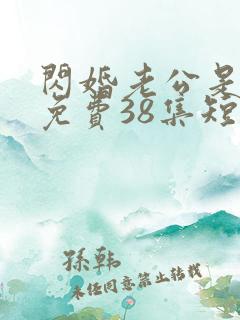 閃婚老公是
免費38集短
孫韓
未經同意禁止轉載